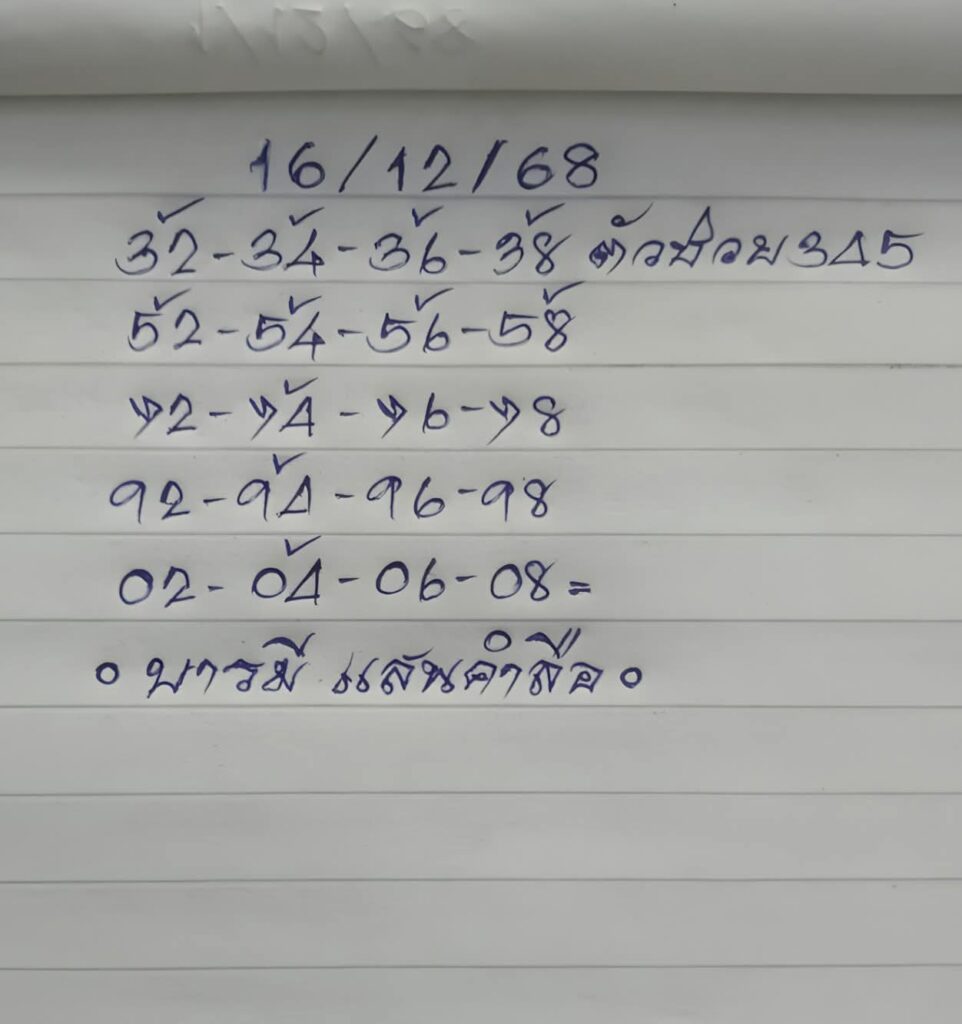 16/12/68
32-34-36-38 ตัวช่วย345
52-54-56-58
72-74-76-78
92-94-96-98
02-04-06-08=
๐ บารมี แสนคำลือ ๐